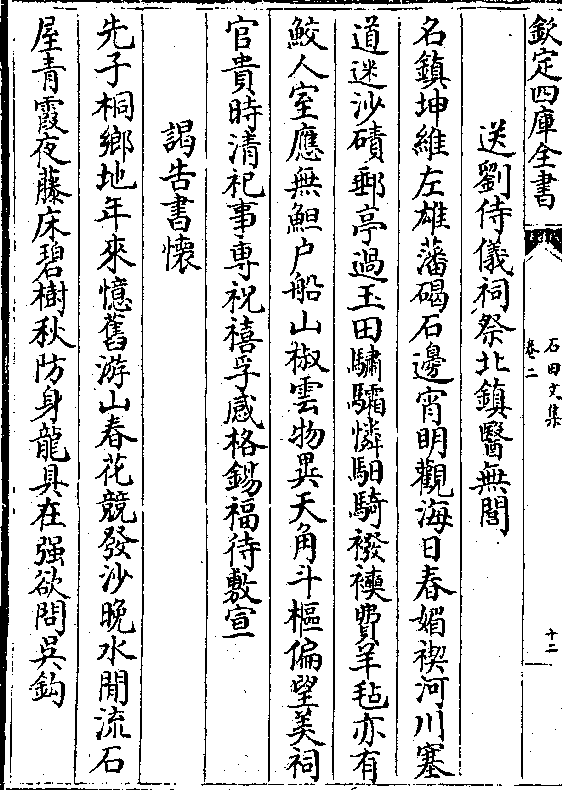 欽定四庫全書
石田文集
卷二
十二
送劉侍儀祠祭北鎮醫無閭
名鎮坤維左雄藩碣石邊宵明觀海日春媚禊河川塞
道迷沙磧郵亭過玉田驌驦憐馹騎襏襫費羊毡亦有
鮫人室應無鮔户船山椒雲物異天角斗樞偏望美祠
官貴時清祀事專祝禧孚感格錫福待敷宣
謁告書懷
先子桐鄉地年來憶舊游山春花競發沙晚水閒流石
屋青霞夜藤床碧樹秋防身龍具在强欲問吳鈎